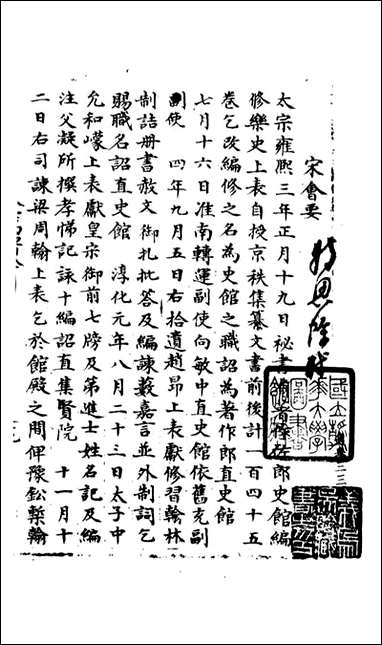 宋會要
特恩除職
太宗雍熙三年正月十九日秘書省著作佐郎史館編
修樂史上表自授京秩集纂文書前後計一百四十五
卷乞改編修之名為史館之職詔為著作郎直史館
七月十六日淮南轉運副使向敏中直史館依舊充副
副使　四年九月五日右拾遺趙昂上表獻修習翰林
制詰册書敕文御札批答及編諫藪嘉言並外制詞乞
賜職名詔直史館　淳化元年八月二十三日太子中
允和㠓上表獻皇宗御前七牓及第進士姓名記及編
注父凝所撰孝悌記詠十編詔直集賢院　十一月十
二日右司諫梁周翰上表乞於館殿之間俾豫鈆槧翰